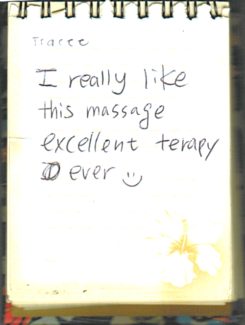 Tracee
I really like
this massage
excellent terapy
ever